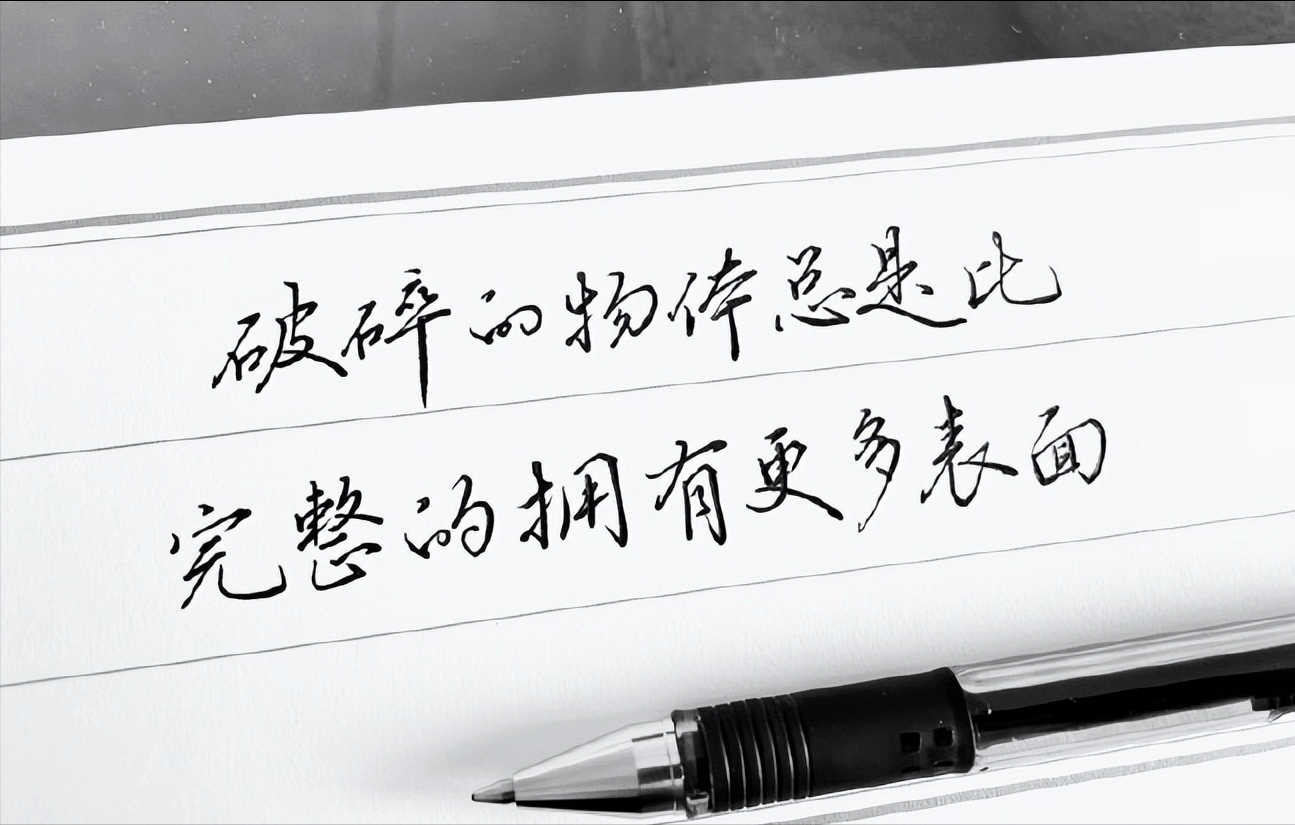 破碎的物体总是比
完整的拥有更多表面